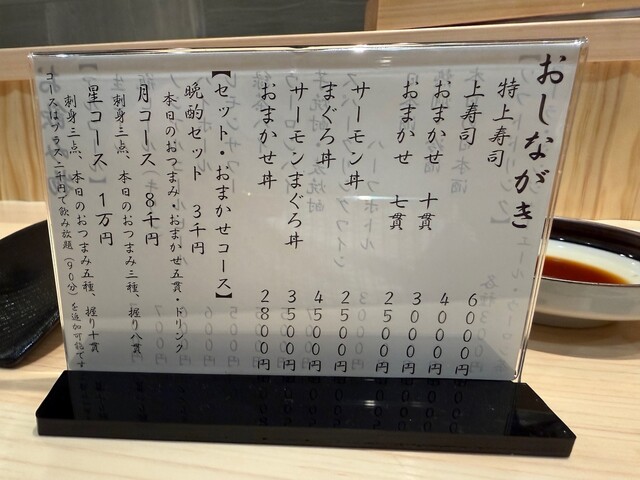 おしながき
特上寿司 6000円
上寿司 4000円
おまかせ 十貫 3000円
おまかせ 七貫 2500円
サーモン丼 2500円
まぐろ丼 4500円
サーモンまぐろ丼 3500円
おまかせ丼 2800円
【セット・おまかせコース】
晩酌セット 3千円
本日のおつまみ・おまかせ五貫・ドリンク
月コース 8千円
刺身三点、本日のおつまみ三種、握り八貫
星コース 1万円
刺身三点、本日のおつまみ五種、握り十貫
コースはプラス二千円で飲み放題(90分)を追加可能です